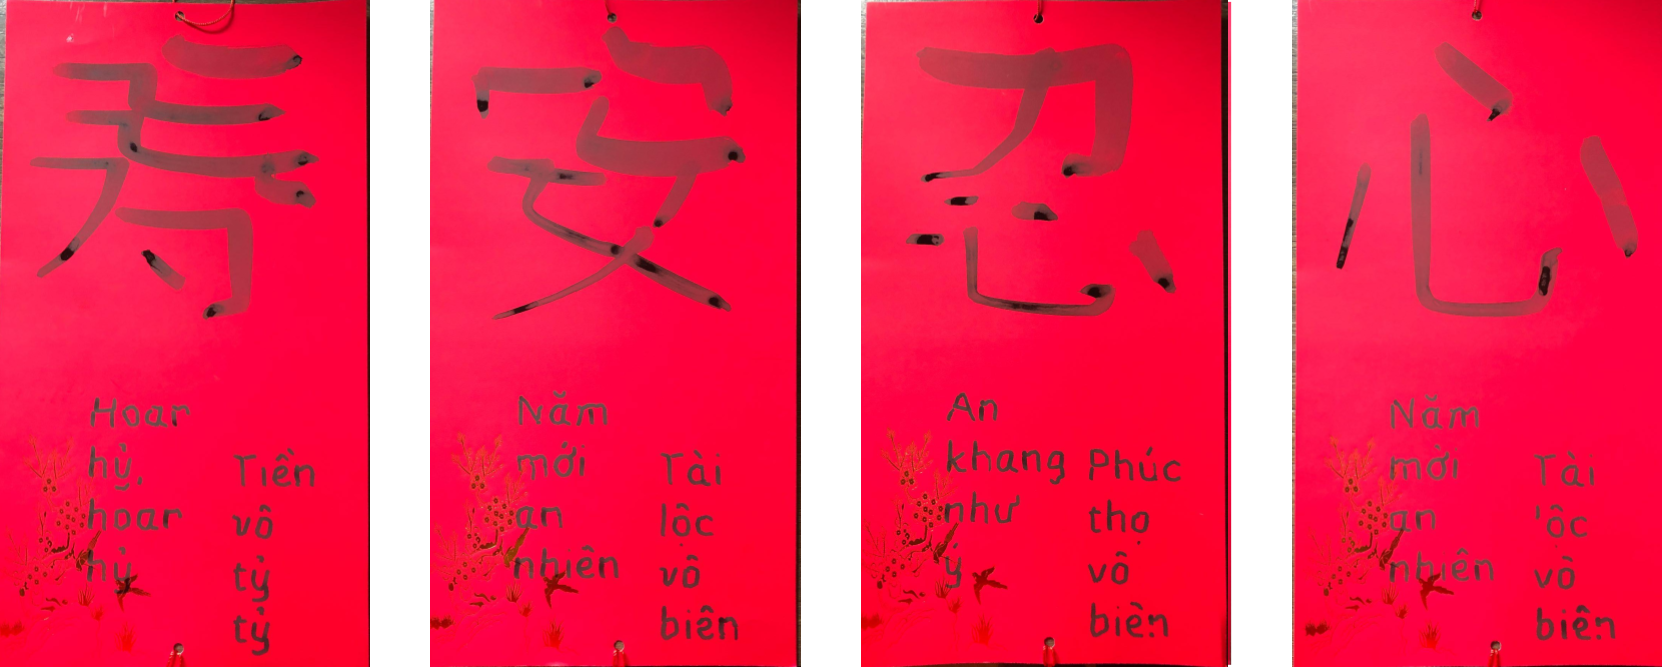 寿
Hoan
hỷ,
hoan
hỷ
Tiền
vô
tỷ
tỷ
安
Năm
mới
an
nhiên
Tài
lộc
vô
biên
忍
An
khang
như
ý
Phúc
thọ
vô
biên
心
Năm
mới
an
nhiên
Tài
lộc
vô
biên